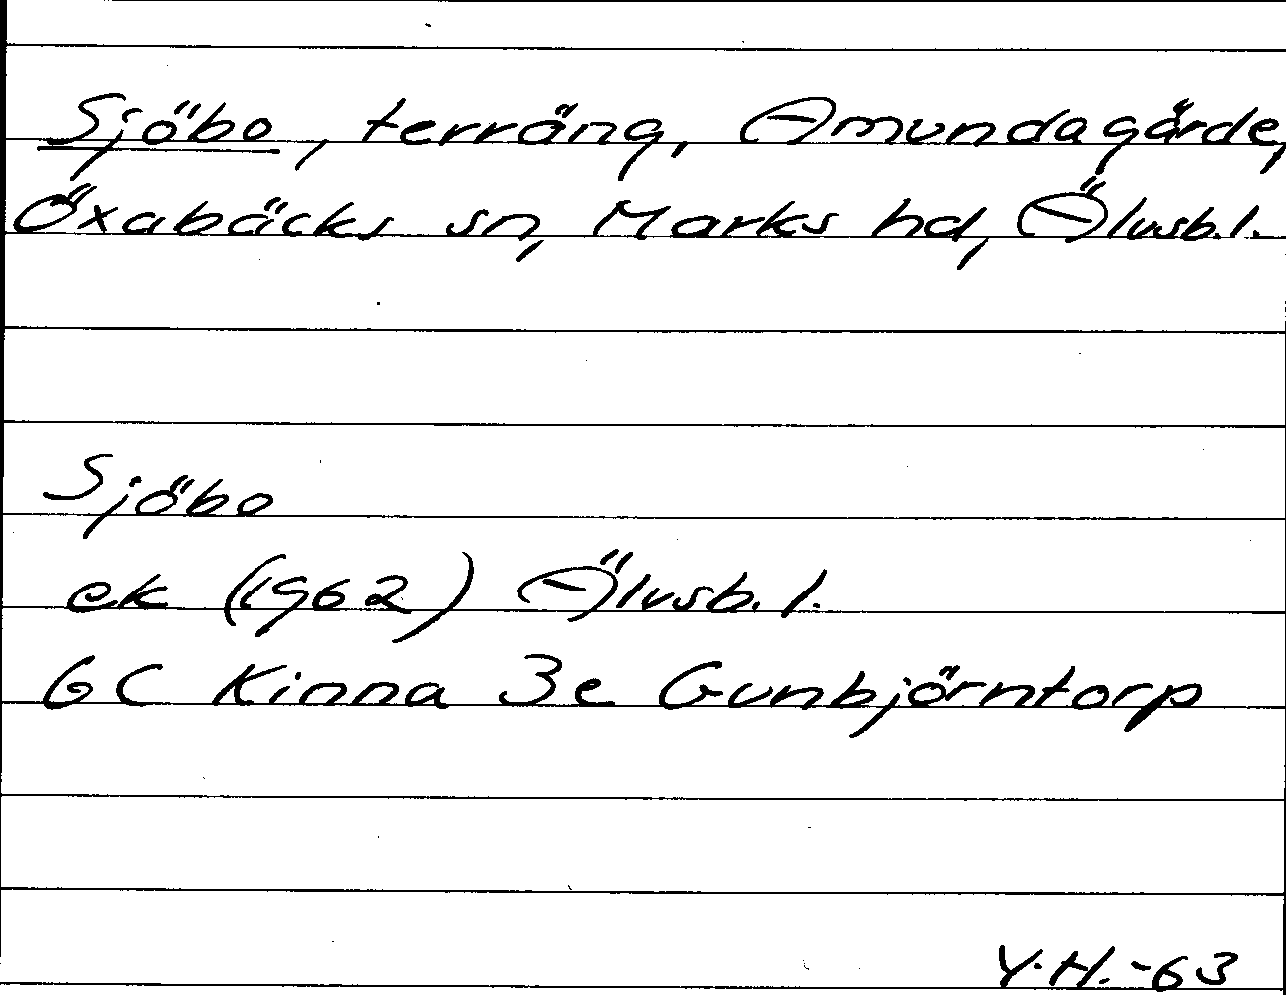 Sjöbo, terräng, Amundagärde,
Öxabäcks sn, Marks hd, Älvsb.l.
Sjöbo
ek (1962) Älvsb.l.
6C Kinna 3e Gunbjörntorp
Y.H.-63